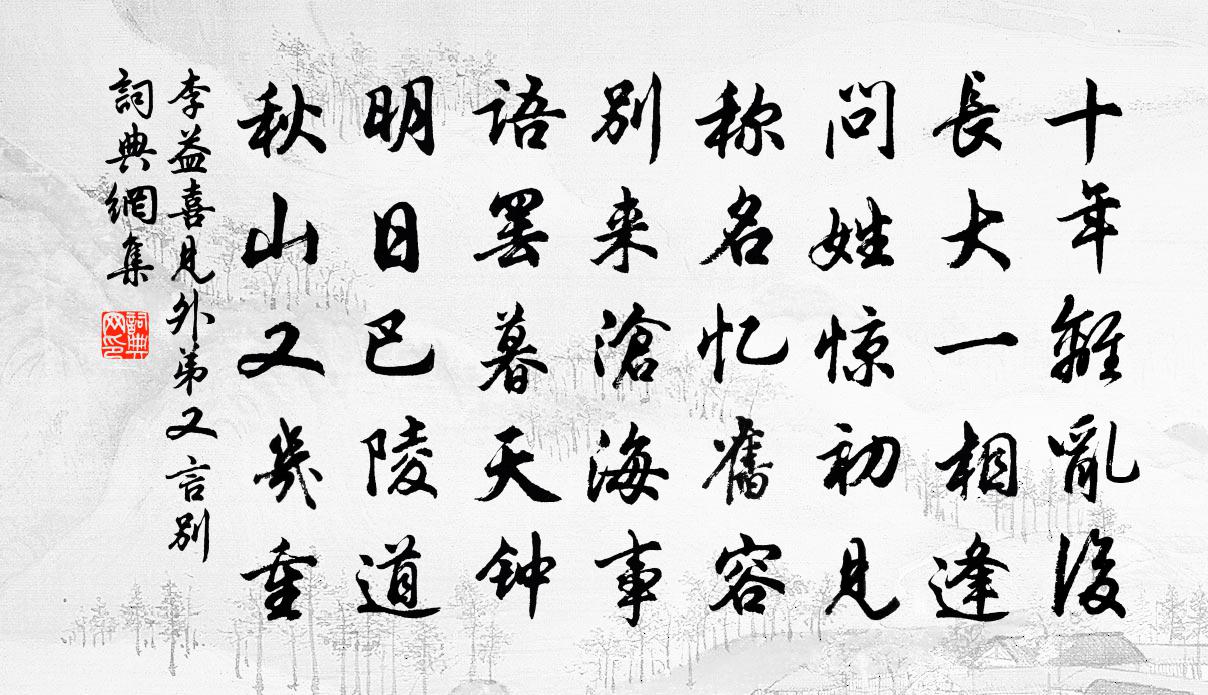 十年離亂後
長大一相逢
问姓惊初見
称名忆舊容
別来滄海事
語罢暮天钟
明日巴陵道
秋山又幾重
李益喜見外弟又言別
詞典網集
詞典网印